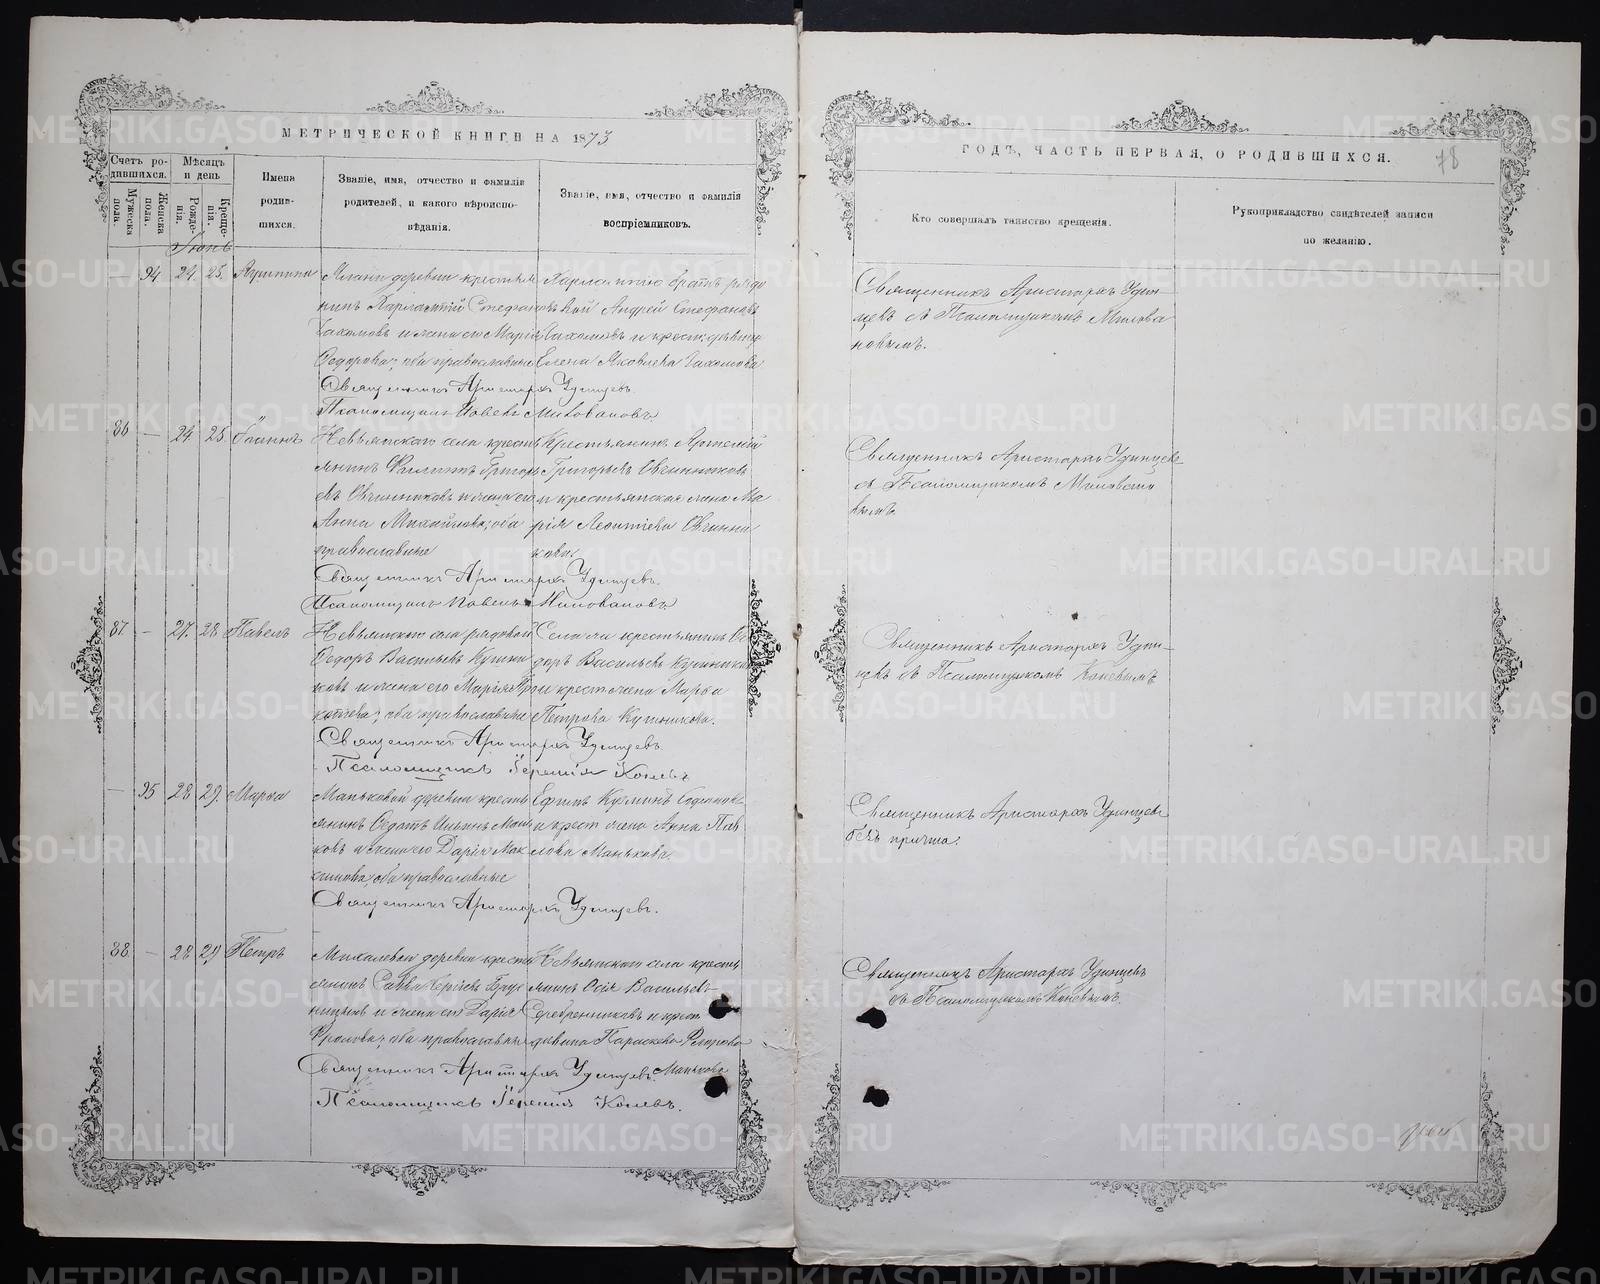 МЕТРИЧЕСКОЙ КНИГИ НА 1873
Счетъ родившихся.
Мужеска пола.
Женска пола.
Мѣсяцъ и день
Рожденія.
Крещенія.
Имена родившихся.
Званіе, имя, отчество и фамилія родителей, и какого вѣроисповѣданія.
Званіе, имя, отчество и фамилія воспріемниковъ.
Іюнь
— 94 24. 25.
деревни крестья
нинъ Харлампій Стефановъ
и жена его Марія
Федорова; оба православные
Харлампію братъ рядо
вой Андрей Стефановъ
и крест. дѣвица
Елена Яковлева
Священникъ Аристархъ Удинцевъ
Псаломщикъ Павелъ Миловановъ
86 — 24 25 Іоаннъ
Невьянскаго села кресть
янинъ Филиппъ Григорь
евъ Овчинниковъ и жена его
Анна Михайлова; оба
православные
Крестьянинъ
Григорьевъ Овчинниковъ
и крестьянская жена Ма
рія Леонтіева Овчинни
кова.
Священникъ Аристархъ Удинцевъ.
Псаломщикъ Павелъ Миловановъ
87. — 27. 28 Павелъ
Невьянскаго села рядовой
Федоръ Васильевъ
и жена его Марія
оба православные
Села сего крестьянинъ Фе
доръ Васильевъ
и крест. жена Марѳа
Петрова
Священникъ Аристархъ Удинцевъ.
Псаломщикъ Іеремія Коневъ
— 95 28 29. Марѳа
Маньковой деревни кресть
янинъ Федотъ Ильинъ Мань
ковъ и жена его Дарія Мак
симова; оба православные
Ефимъ Кузминъ
и крест. жена Анна Пав
лова Манькова.
Священникъ Аристархъ Удинцевъ.
88. — 28 29 Петръ
Михалевой деревни кресть
янинъ Савва Сергіевъ Брус
ницынъ и жена его Дарія
Фролова; оба православны
Невьянскаго села кресть
янинъ Осія Васильевъ
Серебренниковъ и крест.
дѣвица Параскева
Манькова
Священникъ Аристархъ Удинцевъ.
Псаломщикъ Іеремія Коневъ.
ГОДЪ, ЧАСТЬ ПЕРВАЯ, О РОДИВШИХСЯ.
78
Кто совершалъ таинство крещенія.
Рукоприкладство свидѣтелей записи по желанію.
Священникъ Аристархъ Удин-
цевъ съ Псаломщикомъ Милова
новымъ.
Священникъ Аристархъ Удинцевъ
съ Псаломщикомъ Миловано
вымъ
Священникъ Аристархъ Удин-
цевъ съ Псаломщикомъ Коневымъ
Священникъ Аристархъ Удинцевъ
безъ причта.
Священникъ Аристархъ Удинцевъ
съ Псаломщикомъ Коневымъ.
METRIKI.GASO-URAL.RU